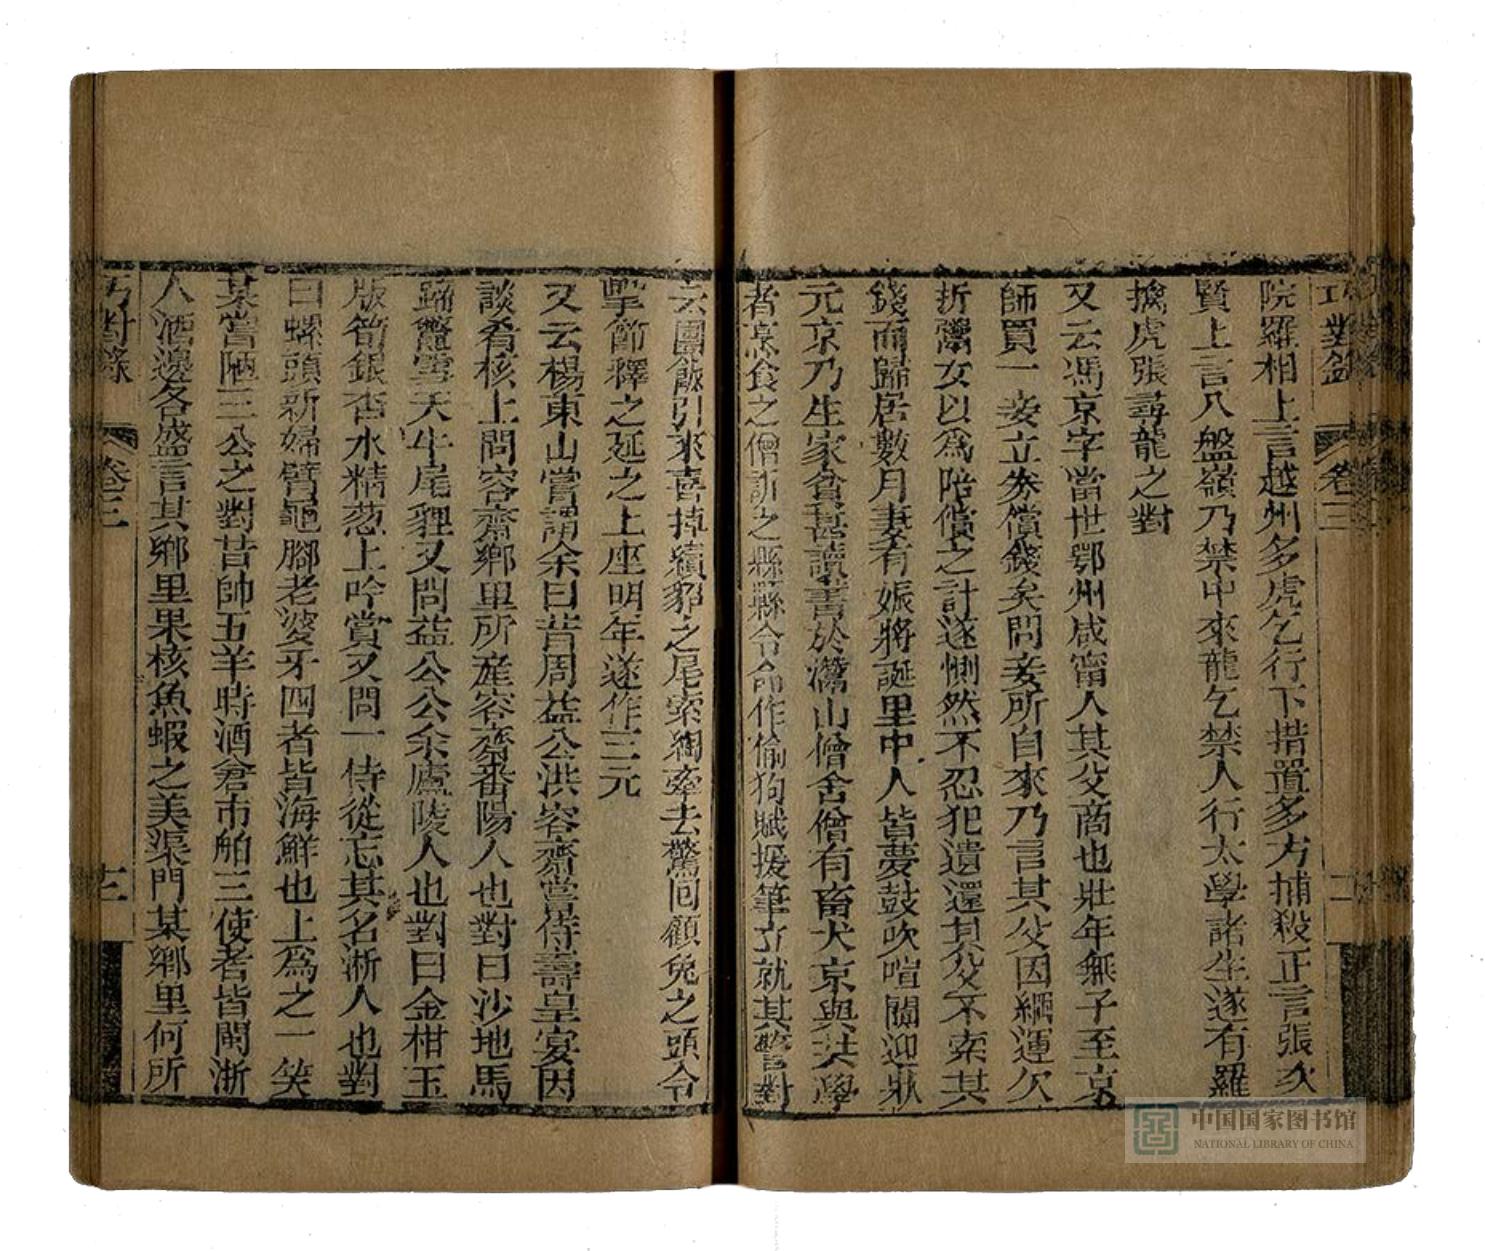 巧對錄
卷三
二
院羅相上言越州多虎乞行下措置多方捕殺正言張次
賢上言八盤嶺乃禁中來龍乞禁人行太學諸生遂有羅
擒虎張尋龍之對
又云馮京字當世鄂州咸甯人其父商也壯年無子至京
師買一妾立券償錢矣問妾所自來乃言其父因綱運欠
折鬻女以為陪償之計遂惻然不忍犯遺還其父不索其
錢而歸居數月妻有娠將誕里中人皆夢鼓吹喧闐迎狀
元京乃生家貧甚讀書於灊山僧舍僧有畜犬京與共學
者烹食之僧訴之縣縣令命作偷狗賦援筆立就其警對
云團飯引來喜掉續貂之尾索綯牽去驚回顧兔之頭令
擊節釋之延之上座明年遂作三元
又云楊東山嘗謂余曰昔周益公洪容齋嘗侍壽皇宴因
談肴核上問容齋鄉里所產容齋番陽人也對曰沙地馬
蹄鼈雪天牛尾貍又問益公公余廬陵人也對曰金柑玉
版筍銀杏水精葱上吟賞又問一侍從忘其名浙人也對
曰螺頭新婦臂龜腳老婆牙四者皆海鮮也上為之一笑
某嘗陋三公之對昔帥五羊時酒倉市舶三使者皆閩浙
人酒邊各盛言其鄉里果核魚蝦之美渠問某鄉里何所
巧對錄
卷三
三
中国国家图书馆
NATIONAL LIBRARY OF CHINA